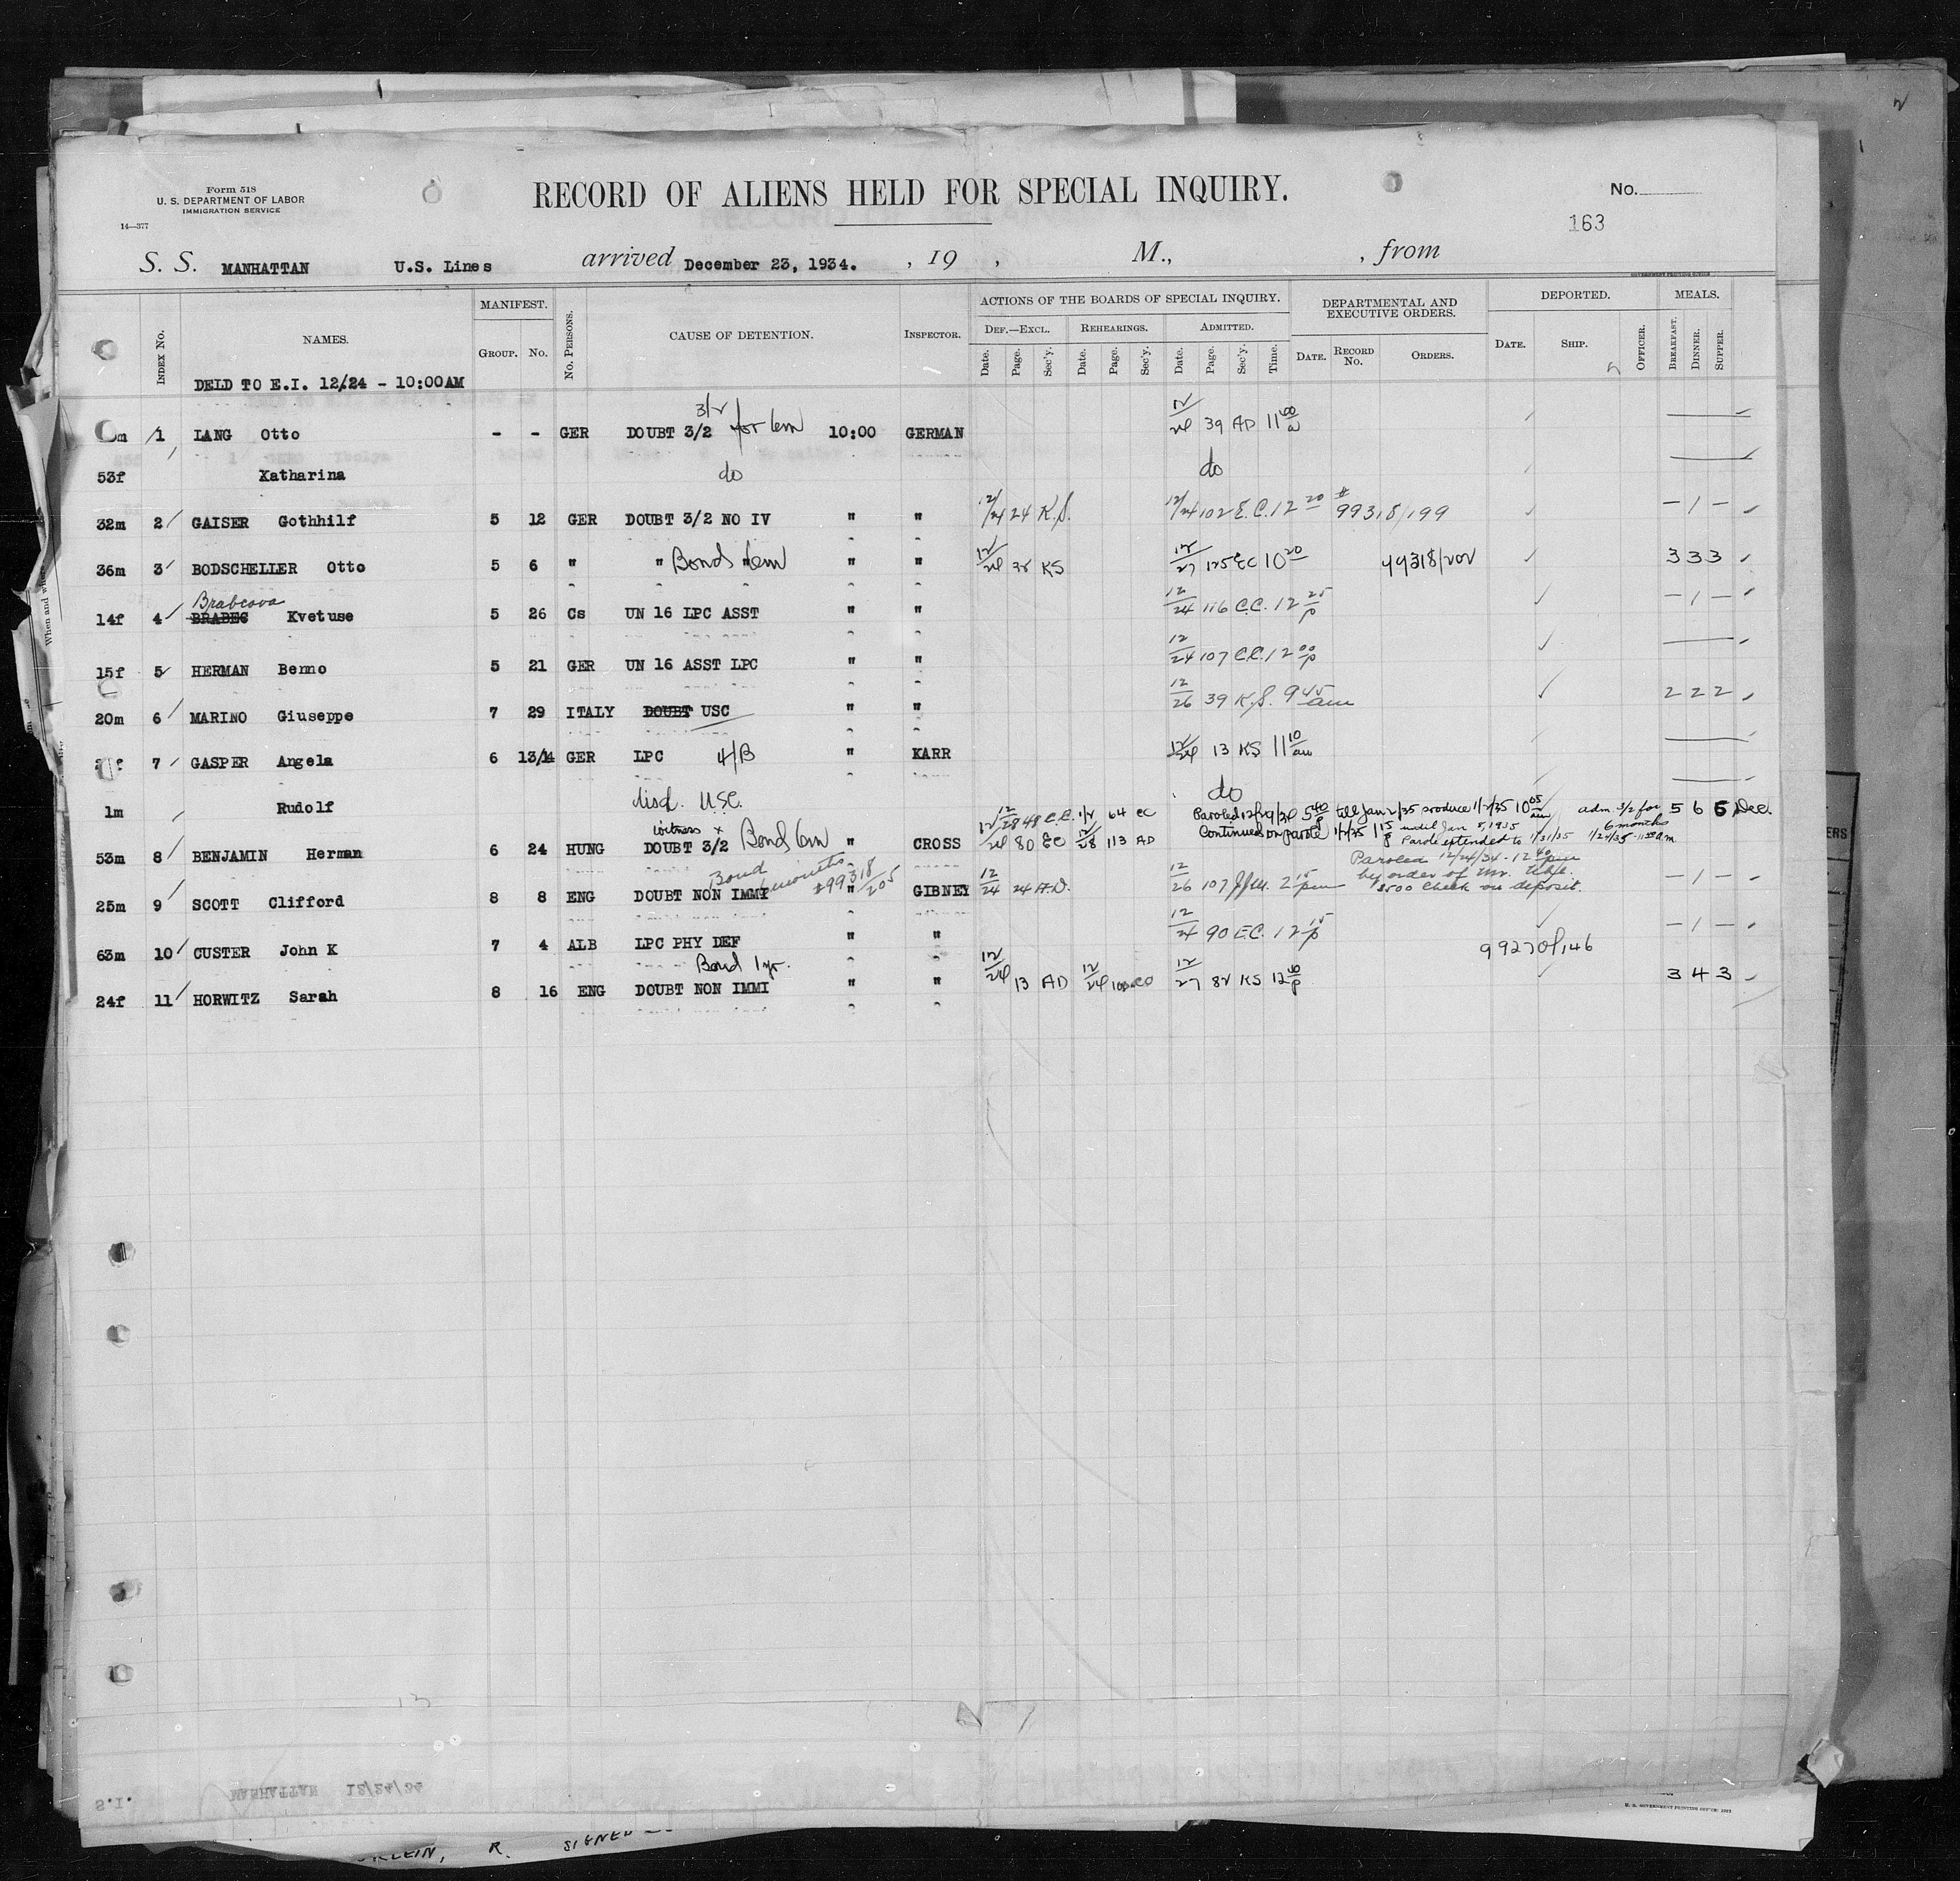 Form 518
U. S. DEPARTMENT OF LABOR
IMMIGRATION SERVICE
14—377
RECORD OF ALIENS HELD FOR SPECIAL INQUIRY.
No.
163
S. S. MANHATTAN U.S. Lines arrived December 23, 1934. , 19 , M., , from
INDEX No. NAMES. MANIFEST. GROUP. No. No. PERSONS. CAUSE OF DETENTION. INSPECTOR. ACTIONS OF THE BOARDS OF SPECIAL INQUIRY. DEF.—EXCL. Date. Page. Sec'y. REHEARINGS. Date. Page. Sec'y. ADMITTED. Date. Page. Sec'y. Time. DEPARTMENTAL AND EXECUTIVE ORDERS. DATE. RECORD No. ORDERS. DEPORTED. DATE. SHIP. OFFICER. MEALS. BREAKFAST. DINNER. SUPPER.
DELD TO E.I. 12/24 - 10:00AM
m 1 LANG Otto - - GER DOUBT 3/2 3/2 for 6m 10:00 GERMAN 12/24 39 AD 11 00
53f Katharina do do
32m 2 GAISER Gothhilf 5 12 GER DOUBT 3/2 NO IV " " 12/24 24 K.S. 12/24 102 E.C. 12 20 # 99318/199 - 1 -
36m 3 BODSCHELLER Otto 5 6 " " Bond 6m " " 12/24 32 KS 12/27 125 EC 10 20 99318/202 3 3 3
Brabcova
14f 4 BRABEC Kvetuse 5 26 Cs UN 16 LPC ASST " " 12/24 116 C.C. 12 25 p - 1 -
15f 5 HERMAN Benno 5 21 GER UN 16 ASST LPC " " 12/24 107 C.C. 12 00 p
20m 6 MARINO Giuseppe 7 29 ITALY DOUBT USC " " 12/26 39 K.S. 9 45 am 2 2 2
7 GASPER Angela 6 13/14 GER LPC 4/B " KARR 12/24 13 KS 11 10 am
1m Rudolf disd. USC. do
12/28 48 C.C. 1/2 64 EC Paroled 12/29/34 5 40 p till Jan 2/35 produce 1/2/35 10 05 am adm. 3/2 for 6 months 5 6 6 Dec.
witness x
53m 8 BENJAMIN Herman 6 24 HUNG DOUBT 3/2 Bond 6m " CROSS 12/24 80 EC 12/28 113 AD Continued on parole 1/2/35 1 15 p until Jan 5, 1935 Parole extended to 1/31/35 1/24/35 - 11 am
Bond months #99318/205
25m 9 SCOTT Clifford 8 8 ENG DOUBT NON IMMI " GIBNEY 12/24 24 A.D. 12/26 107 2 15 pm Paroled 12/24/34 - 12 40 pm by order of Mr. Uhl. $500 Check on deposit. - 1 -
63m 10 CUSTER John K 7 4 ALB LPC PHY DEF " " 12/24 90 E.C. 12 15 p - 1 -
Bond 1 yr. 99270/146
24f 11 HORWITZ Sarah 8 16 ENG DOUBT NON IMMI " " 12/24 13 AD 12/24 12/27 82 KS 12 40 p 3 4 3
S.I. MANHATTAN 12/24/34
KLEIN, R. SIGNED